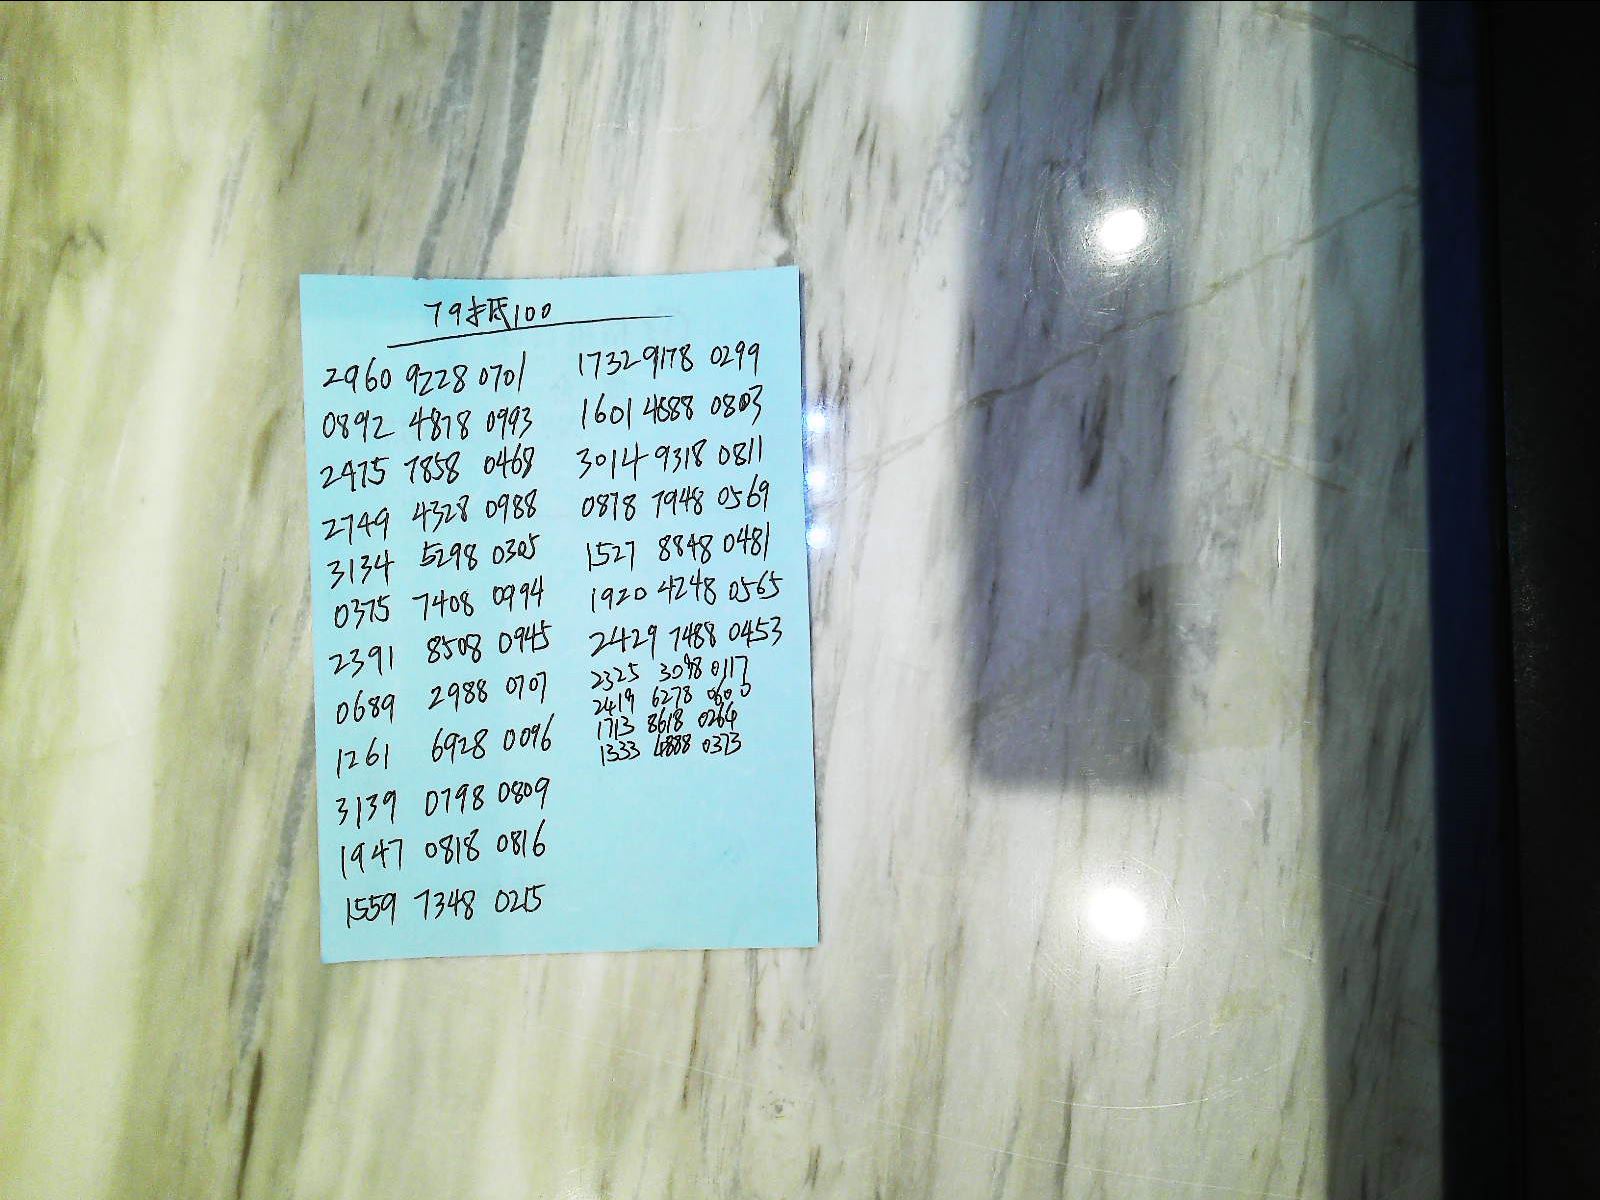 79抵100
2960 9228 0701
0892 4878 0993
2475 7858 0468
2749 4328 0988
3134 5298 0305
0375 7408 0994
2391 8508 0945
0689 2988 0707
1261 6928 0096
3139 0798 0809
1947 0818 0816
1559 7348 0215
1732 9178 0299
1601 4688 0803
3014 9318 0811
0878 7948 0569
1527 8848 0481
1920 4248 0565
2429 7488 0453
2325 3098 0117
2419 6278 0600
1713 8618 0264
1333 4888 0373